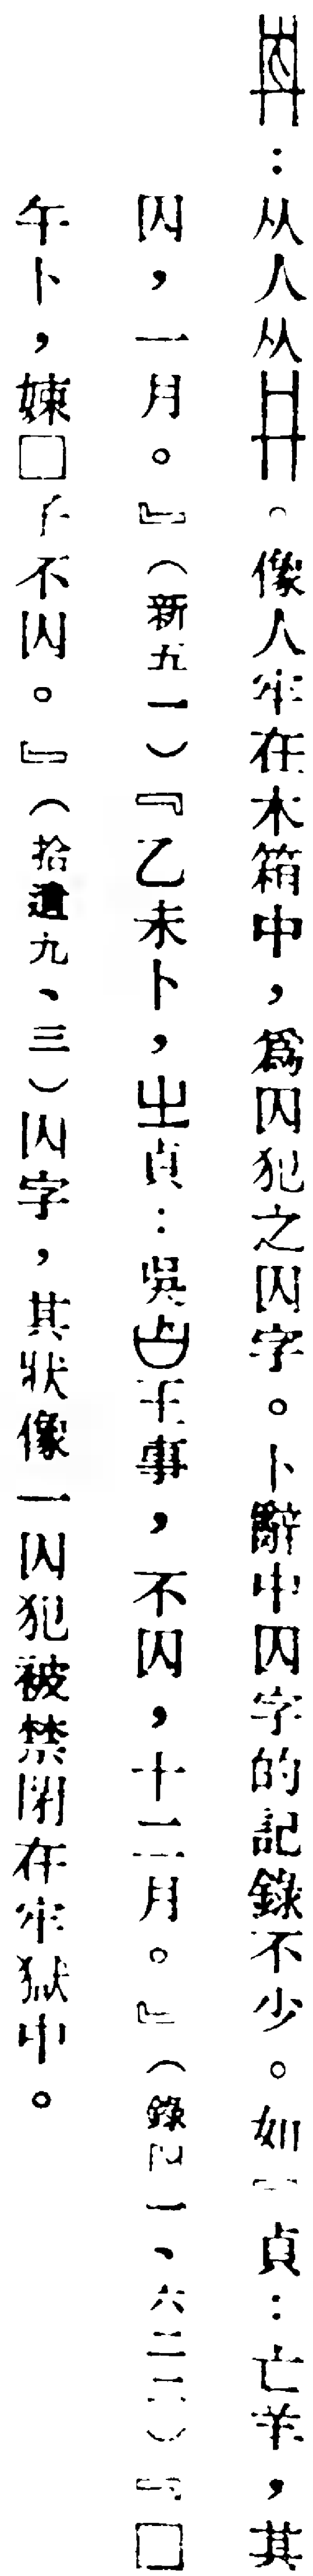 ：从人从。像人牢在木箱中，爲囚犯之囚字。卜辭中囚字的記錄不少。如『貞：亡羊，其
囚，一月。』（新五一）『乙未卜，㞢貞：吳王事，不囚，十二月。』（錄一、六二二）『□
午卜，婡□子不囚。』（拾遺九、三）囚字，其狀像一囚犯被禁閉在牢獄中。